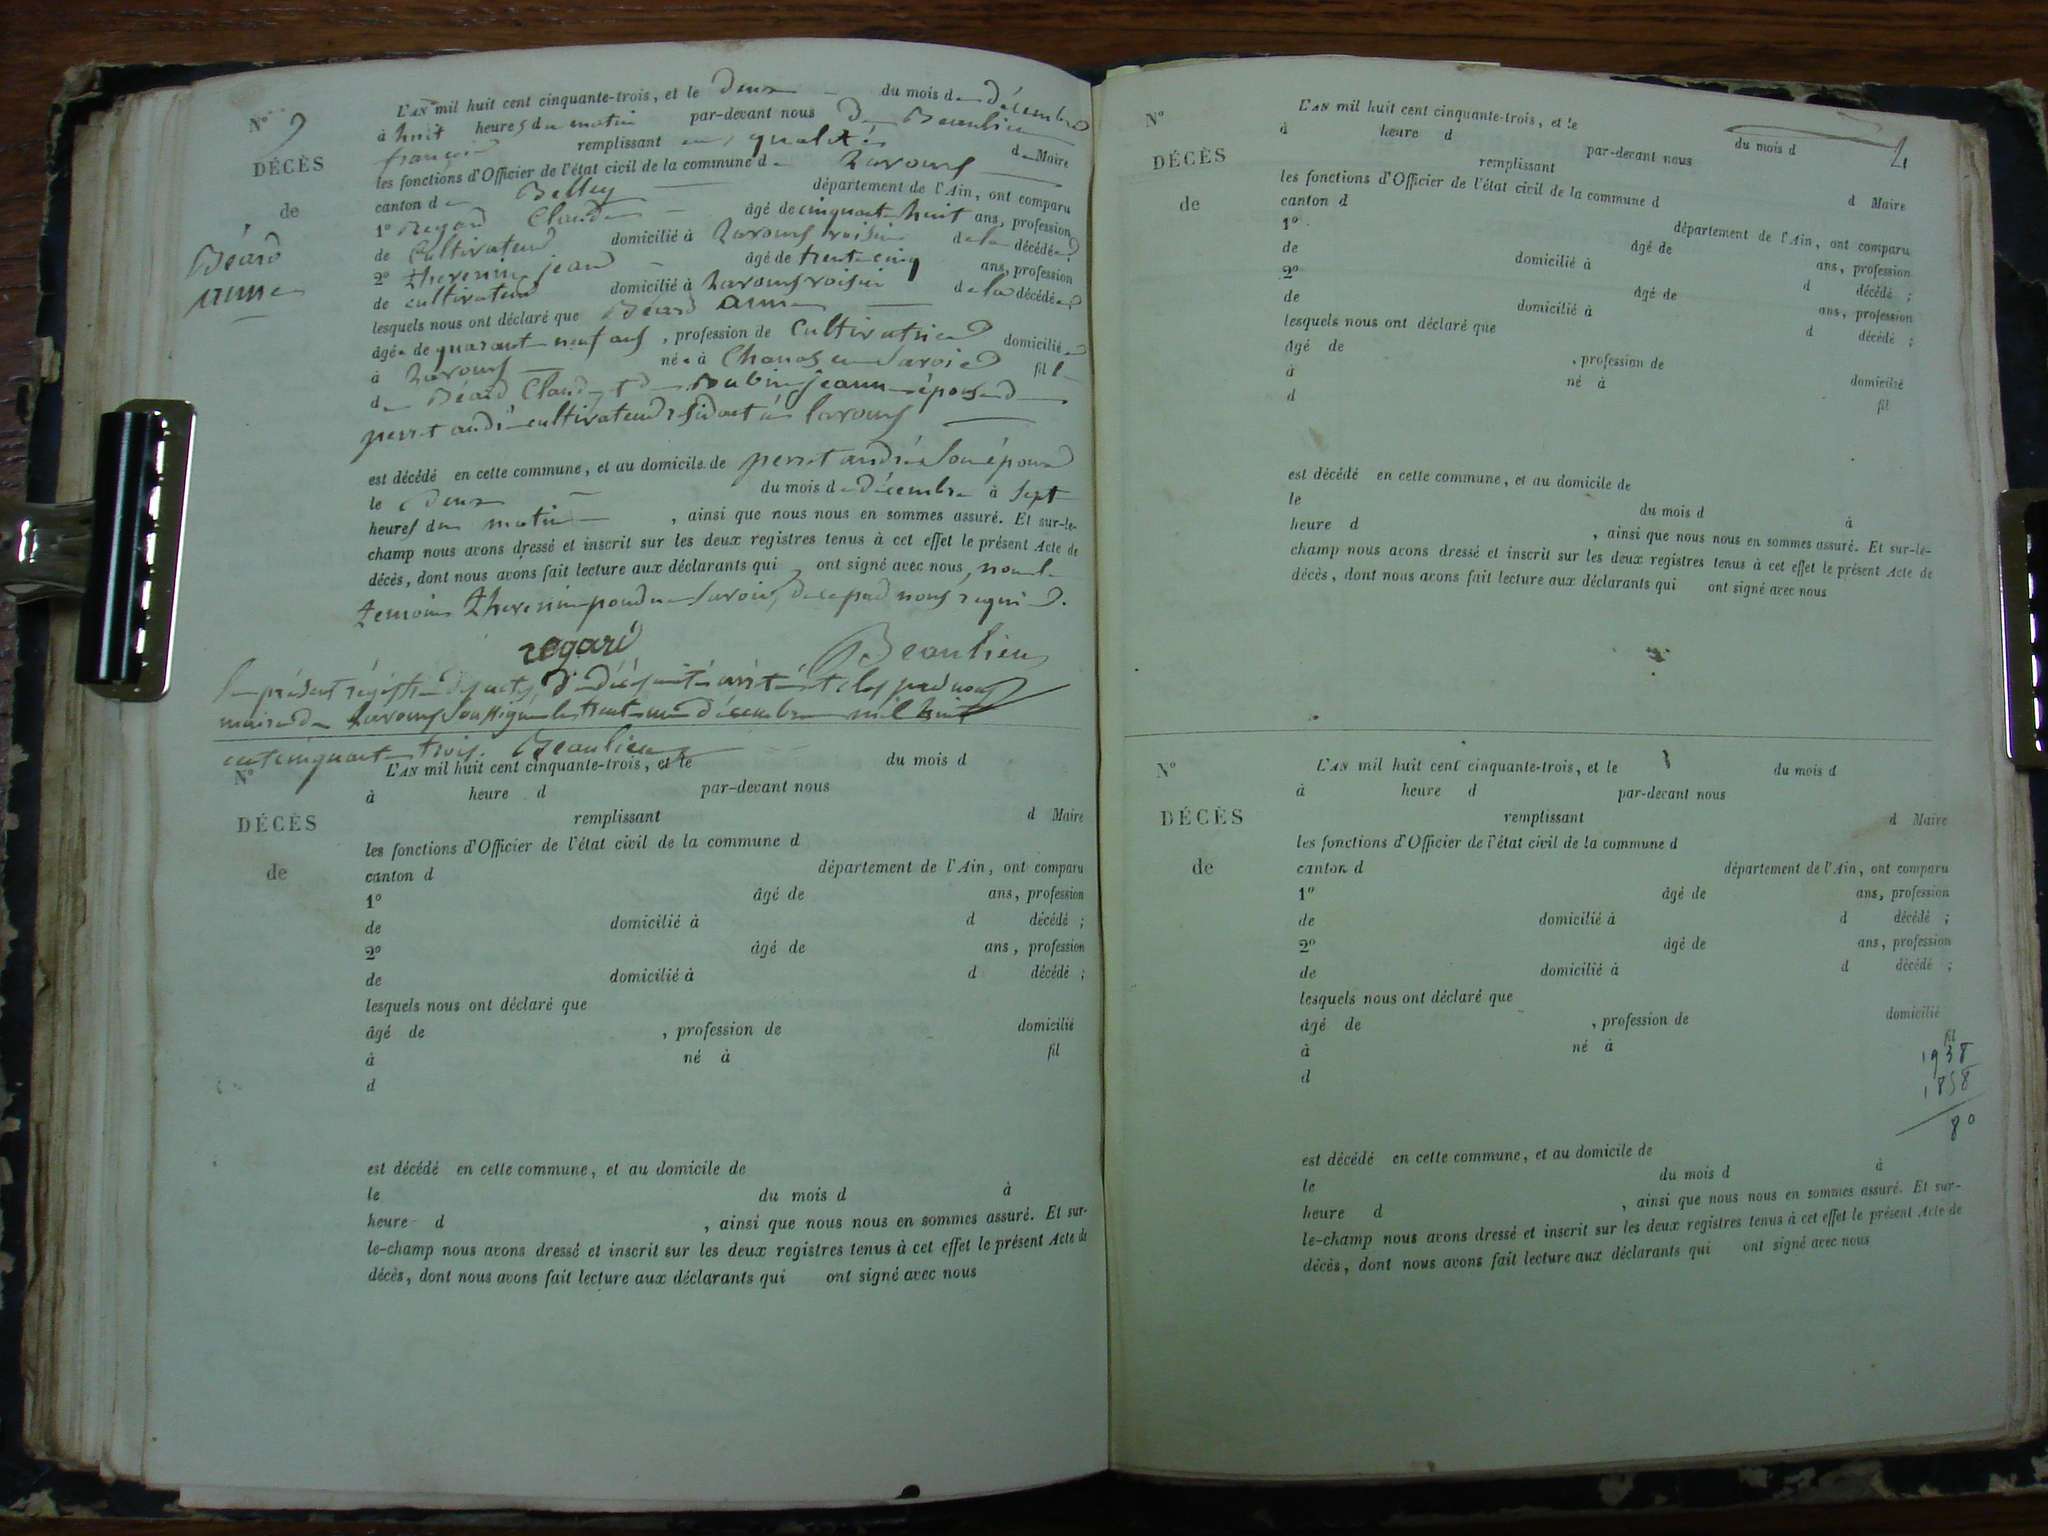 N° 9
DÉCÈS
de
Béard
anne
L'AN mil huit cent cinquante-trois, et le deux du mois de décembre
à huit heures du matin par-devant nous Beaulieu
françois remplissant en qualité de Maire
les fonctions d'Officier de l'état civil de la commune de Lavours
canton de Belley département de l'Ain, ont comparu
1° Regard Claude âgé de cinquante huit ans, profession
de Cultivateur domicilié à Lavours voisin de la décédée ;
2° thevenin jean âgé de trente cinq ans, profession
de cultivateur domicilié à Lavours voisin de la décédée ;
lesquels nous ont déclaré que Béard anne
âgée de quarante neuf ans, profession de Cultivatrice domiciliée
à Lavours née à Chanas en Savoie fille
de Béard Claude et de jeanne épouse de
perret andré cultivateur résidant à lavours
est décédé en cette commune, et au domicile de perret andré son époux
le deux du mois de décembre à sept
heures du matin, ainsi que nous nous en sommes assuré. Et sur-le-
champ nous avons dressé et inscrit sur les deux registres tenus à cet effet le présent Acte de
décès, dont nous avons fait lecture aux déclarants qui ont signé avec nous, non le
temoin thevenin pour ne savoir, de ce par nous requis.
regard Beaulieu
le présent régistre des actes de décès a été arrêté et clos par nous
maire de Lavours soussigné le trente un décembre mil huit
cent cinquante trois. Beaulieu
N°
DÉCÈS
de
L'AN mil huit cent cinquante-trois, et le du mois d
à heure d par-devant nous
remplissant d Maire
les fonctions d'Officier de l'état civil de la commune d
canton d département de l'Ain, ont comparu
1° âgé de ans, profession
de domicilié à d décédé ;
2° âgé de ans, profession
de domicilié à d décédé ;
lesquels nous ont déclaré que
âgé de , profession de domicilié
à né à fil
d
est décédé en cette commune, et au domicile de
le du mois d à
heure d , ainsi que nous nous en sommes assuré. Et sur-
le-champ nous avons dressé et inscrit sur les deux registres tenus à cet effet le présent Acte de
décès, dont nous avons fait lecture aux déclarants qui ont signé avec nous
N°
DÉCÈS
de
L'AN mil huit cent cinquante-trois, et le du mois d
à heure d par-devant nous
remplissant d Maire
les fonctions d'Officier de l'état civil de la commune d
canton d département de l'Ain, ont comparu
1° âgé de ans, profession
de domicilié à d décédé ;
2° âgé de ans, profession
de domicilié à d décédé ;
lesquels nous ont déclaré que
âgé de , profession de domicilié
à né à fil
d
est décédé en cette commune, et au domicile de
le du mois d à
heure d , ainsi que nous nous en sommes assuré. Et sur-le-
champ nous avons dressé et inscrit sur les deux registres tenus à cet effet le présent Acte de
décès, dont nous avons fait lecture aux déclarants qui ont signé avec nous
N°
DÉCÈS
de
L'AN mil huit cent cinquante-trois, et le du mois d
à heure d par-devant nous
remplissant d Maire
les fonctions d'Officier de l'état civil de la commune d
canton d département de l'Ain, ont comparu
1° âgé de ans, profession
de domicilié à d décédé ;
2° âgé de ans, profession
de domicilié à d décédé ;
lesquels nous ont déclaré que
âgé de , profession de domicilié
à né à fil
d
1938
1858
80
est décédé en cette commune, et au domicile de
le du mois d à
heure d , ainsi que nous nous en sommes assuré. Et sur-
le-champ nous avons dressé et inscrit sur les deux registres tenus à cet effet le présent Acte de
décès, dont nous avons fait lecture aux déclarants qui ont signé avec nous